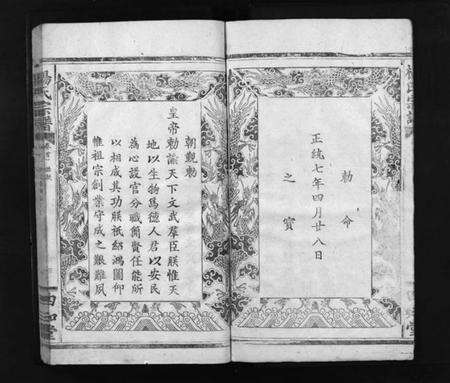 敕命
正統七年四月廿八日
之寶
朝覲勅
皇帝勅諭天下文武羣臣朕惟天
地以生物爲德人君以安民
爲心設官分職簡賢任能所
以相成其功朕祇紹鴻圖仰
惟祖宗創業守成之艱難夙
楊氏宗譜